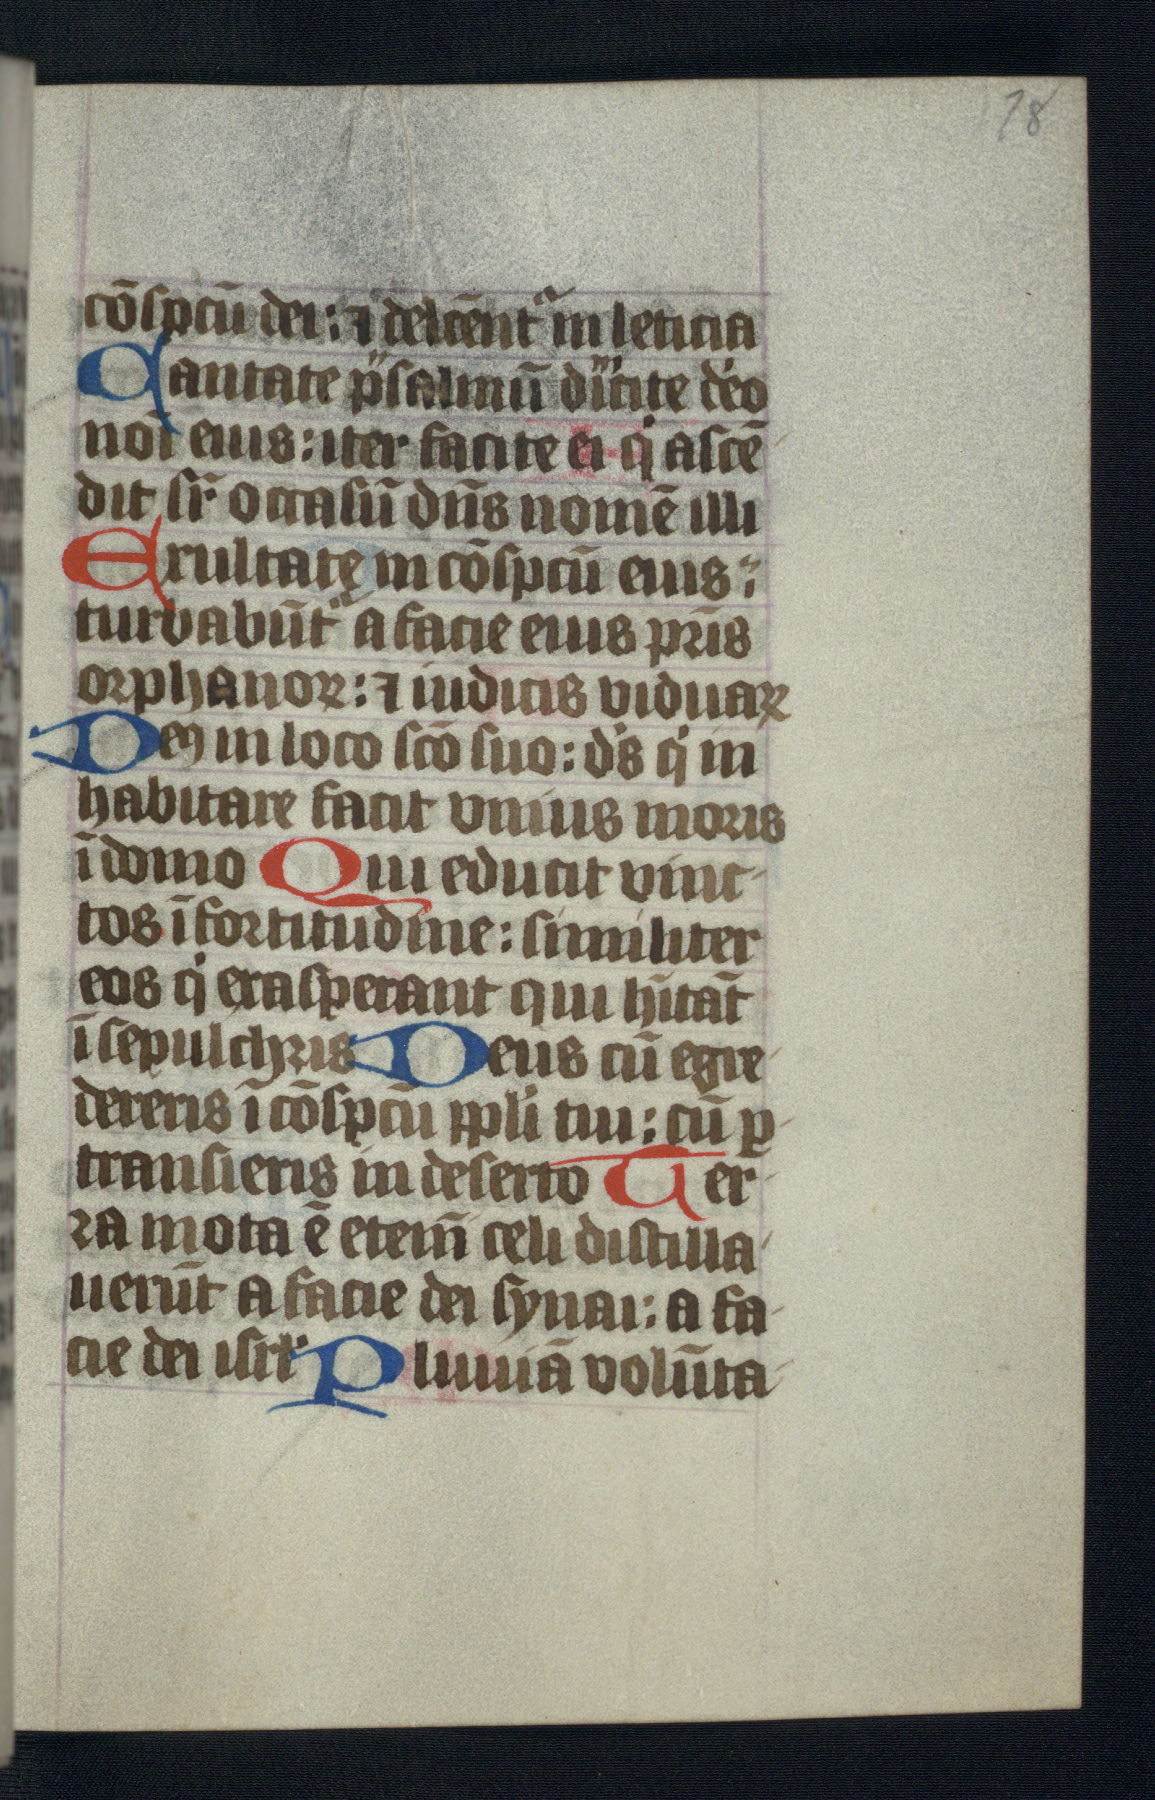 78
cōspcū dei: ⁊ delcēnt᷑ in leticia
Cantate psalmū dicite deo
noī eius: iter facite ei q̇ ascē
dit sr̄ occasū dn̄s nomē illi
Exultate in cōspcū eius:
turbabūt᷑ a facie eius pr̄is
orphanoꝝ: ⁊ iudicis viduaꝝ
Deꝰ in loco scō suo: ds q̇ in
habitare facit vnius moris
ī domo Qui educit vinc-
tos ī fortitudine: similiter
eos q̇ exasperant qui hītāt
ī sepulchris Deus cū egre-
dereris ī cōspcū ppli tui: cū ꝑ-
transieris in deserto Ter-
ra mota ē etem̄ celi distilla-
uerūt a facie dei synai: a fa-
cie dei isrl̄ Pluuiā volūta-